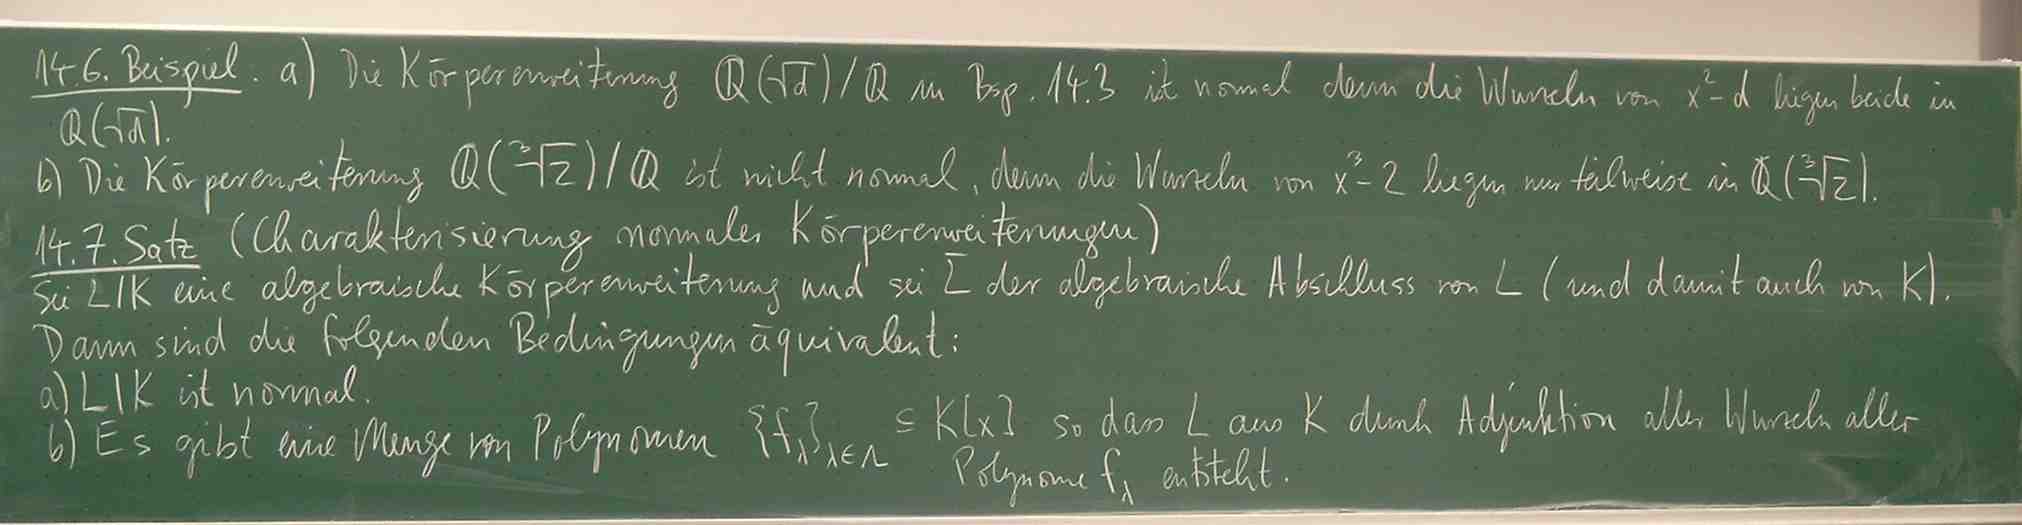 14.6. Beispiel: a) Die Körpererweiterung ℚ(√d)/ℚ in Bsp. 14.3 ist normal denn die Wurzeln von x²-d liegen beide in
ℚ(√d).
b) Die Körpererweiterung ℚ(³√2)/ℚ ist nicht normal, denn die Wurzeln von x³-2 liegen nur teilweise in ℚ(³√2).
14.7. Satz (Charakterisierung normaler Körpererweiterungen)
Sei L/K eine algebraische Körpererweiterung und sei L̄ der algebraische Abschluss von L (und damit auch von K).
Dann sind die folgenden Bedingungen äquivalent:
a) L/K ist normal.
b) Es gibt eine Menge von Polynomen {f_λ}_λ∈Λ ⊆ K[x] so dass L aus K durch Adjunktion aller Wurzeln aller
Polynome f_λ entsteht.